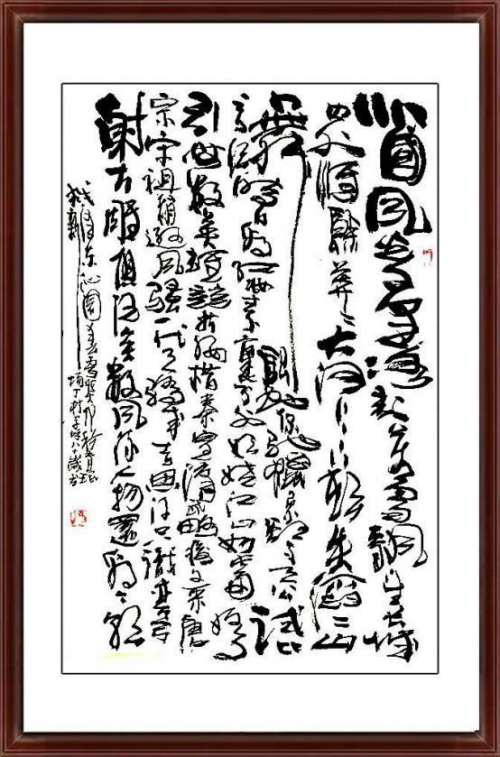 北國風光千里冰封万里雪飘望长城
内外惟餘莽〻大河上下顿失滔〻山
舞銀蛇原驰蠟象欲与天公试比
高须晴日看红妆素裹分外妖娆江山如此多娇
引无数英雄竞折腰惜秦皇漢武略输文采唐
宗宋祖稍逊风骚一代天骄成吉思汗只識弯弓
射大雕俱往矣数风流人物還看今朝
毛泽东沁園春雪